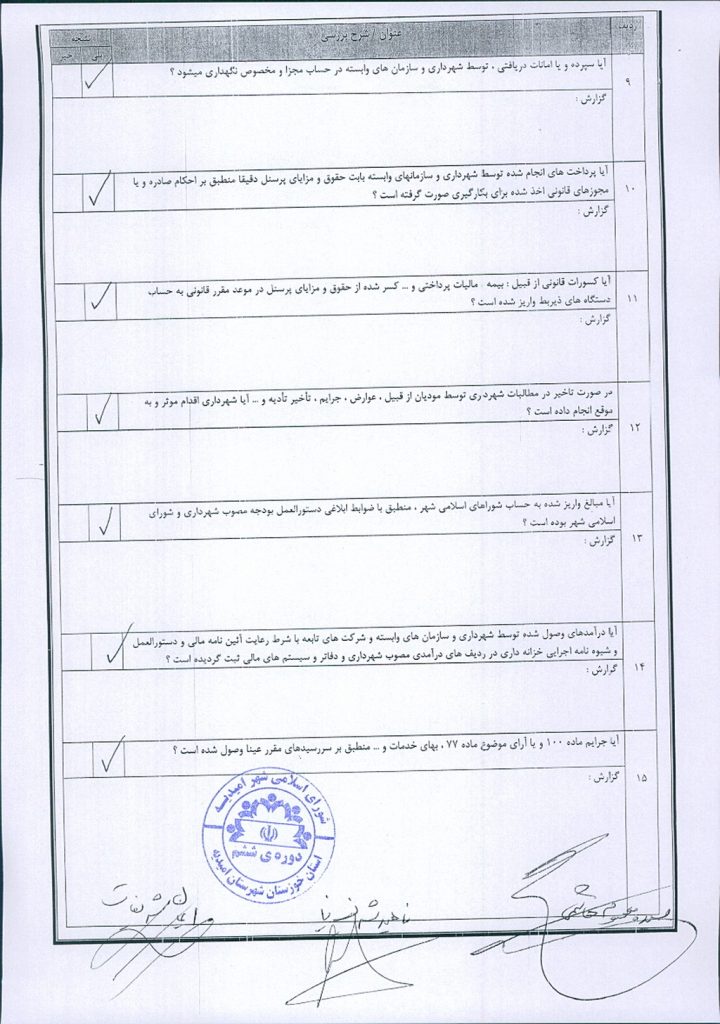 ردیف
عنوان / شرح بررسی
نتیجه
بلی
خیر
۹
آیا سپرده و یا امانات دریافتی ، توسط شهرداری و سازمان های وابسته در حساب مجزا و مخصوص نگهداری میشود ؟
گزارش :
۱۰
آیا پرداخت های انجام شده توسط شهرداری و سازمانهای وابسته بابت حقوق و مزایای پرسنل دقیقا منطبق بر احکام صادره و یا
مجوزهای قانونی اخذ شده برای بکارگیری صورت گرفته است ؟
گزارش :
۱۱
آیا کسورات قانونی از قبیل : بیمه مالیات پرداختی و ... کسر شده از حقوق و مزایای پرسنل در موعد مقرر قانونی به حساب
دستگاه های ذیربط واریز شده است ؟
گزارش :
۱۲
در صورت تاخیر در مطالبات شهرداری توسط مودیان از قبیل ، عوارض ، جرایم ، تأخیر تأدیه و ... آیا شهرداری اقدام موثر و به
موقع انجام داده است ؟
گزارش :
۱۳
آیا مبالغ واریز شده به حساب شوراهای اسلامی شهر ، منطبق با ضوابط ابلاغی دستورالعمل بودجه مصوب شهرداری و شورای
اسلامی شهر بوده است ؟
گزارش :
۱۴
آیا درآمدهای وصول شده توسط شهرداری و سازمان های وابسته و شرکت های تابعه با شرط رعایت آئین نامه مالی و دستورالعمل
و شیوه نامه اجرایی خزانه داری در ردیف های درآمدی مصوب شهرداری و دفاتر و سیستم های مالی ثبت گردیده است ؟
گزارش :
۱۵
آیا جرایم ماده ۱۰۰ و یا آرای موضوع ماده ۷۷ ، بهای خدمات و ... منطبق بر سررسیدهای مقرر عینا وصول شده است ؟
گزارش :
شورای اسلامی شهر امیدیه
دوره ی ششم
استان خوزستان شهرستان امیدیه